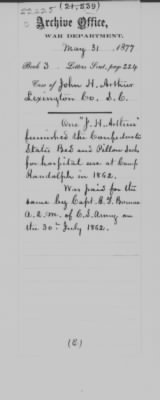 22225 (24,539)
Archive Office,
WAR DEPARTMENT.
May 31 1877
Book 3 Letters Sent, page 224
Case of John H. Arthur
Lexington Co, S. C.
One "J. H. Arthur"
furnished the Confederate
States Bed and Pillow Sacks
for hospital use at Camp
Randolph in 1862.
Was paid for the
same by Capt.
A. Q. M. of C. S. Army on
the 30th July 1862.